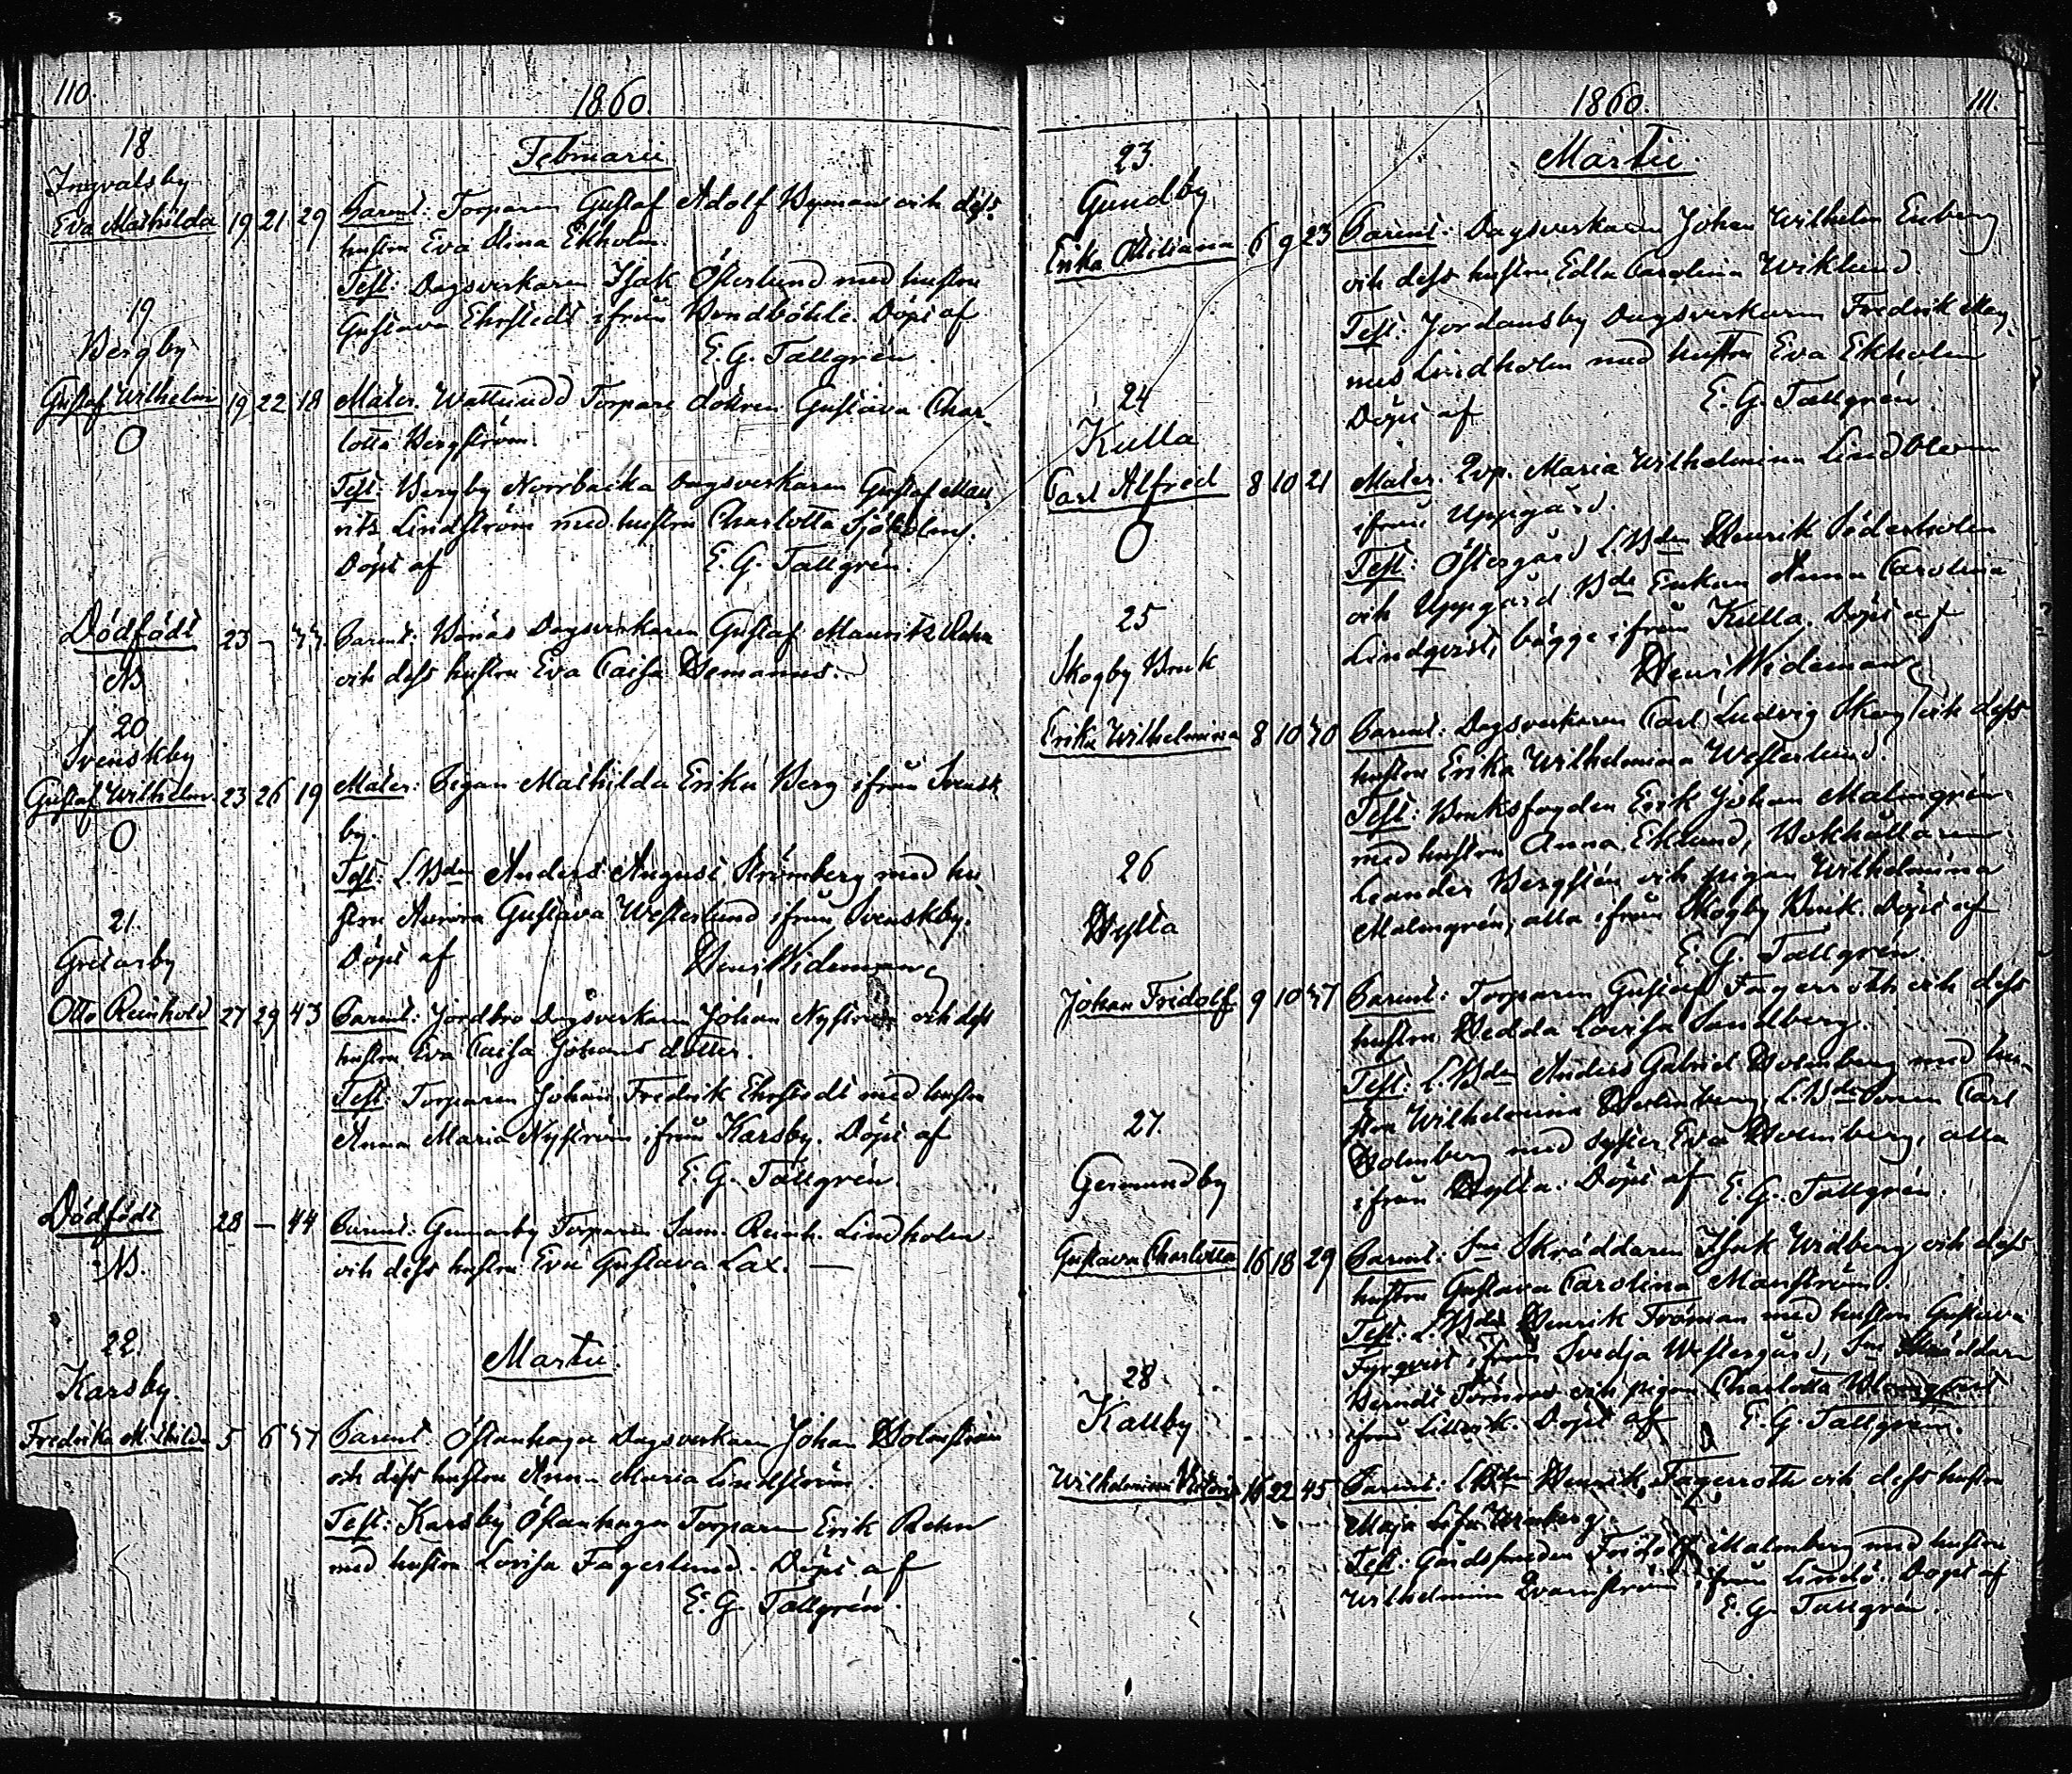 110.
1860.
Februarii
18
Ingvalsby
Eva Mathilda 19 21 29 Parent: Torparen Gustaf Adolf Nyman och dess
hustru Eva Stina Ekholm.
Test: Dagsverkaren Isak Österlund med hustru
Gustava Ehrstedt ifrån Bondböhle. Döpt af
E. G. Tallgrén.
19
Bergby
Gustaf Wilhelm 19 22 18 Mater. Torpare dottren Gustava Char-
lotta Bergström.
O
Test: Bergby Norrbacka Dagsverkaren Gustaf Mau-
ritz Lindström med hustru Charlotta Sjöholm.
Döpt af E. G. Tallgrén.
Dödfödt 23 – Parent: Dagsverkaren Gustaf Mauritz Rehn
NB. och dess hustru Eva Caisa Hemanus.
20
Svenskby
Gustaf Wilhelm 23 26 19 Mater: Pigan Mathilda Erika Berg ifrån Svensk-
by.
O
Test: L.Bden Anders August Strömberg med hu-
stru Aurora Gustava Westerlund ifrån Svenskby.
Döpt af Henr Wideman
21.
Gretarby
Otto Reinhold 27 29 43 Parent: Jordbro Dagsverkaren Johan Nyström och dess
hustru Eva Caisa Johans dotter.
Test: Torparen Johan Fredrik Ehrstedt med hustru
Anna Maria Nyström ifrån Karsby. Döpt af
E. G. Tallgrén.
Dödfödt 28 – 44 Parent: Gennarby Torparen Sam. Reinh. Lindholm
NB. och dess hustru Eva Gustava Lax. —
Martii.
22.
Karsby.
Fredrika Mathilda 5 6 Parent: Östanhaga Dagsverkaren Johan Holmström
och dess hustru Anna Maria Lindström.
Test: Karsby Östanhaga Torparen Erik Rehn
med hustru Lovisa Fagerlund. Döpt af
E. G. Tallgrén.
1860.
111.
Martii.
23.
Gundby
Erika Otiliana 6 9 23 Parent: Dagsverkaren Johan Wilhelm Enberg
och dess hustru Edla Carolina Wiklund.
Test: Jordansby Dagsverkaren Fredrik Mag-
nus Lindholm med hustru Eva Ekholm
Döpt af E. G. Tallgrén.
24
Kulla
Carl Alfred 8 10 21 Mater. Qvp. Maria Wilhelmina Lindblom
ifrån Uppgård.
O
Test: Östergård L.Bden Henrik Söderholm
och Uppgård Bde Enkan Anna Carolina
Lindqvist, bägge ifrån Kulla. Döpt af
Henr Wideman
25
Skogby Bruk
Erika Wilhelmina 8 10 Parent: Dagsverkaren Carl Ludvig Skog och dess
hustru Erika Wilhelmina Westerlund.
Test: Bruksfogden Erik Johan Malmgrén
med hustru Anna Eklund, Bokhållaren
Leander Bergstén och pigan Wilhelmina
Malmgrén, alla ifrån Skogby Bruk. Döpt af
E. G. Tallgrén.
26.
Hylta
Johan Fridolf 9 10 Parent: Torparen Gustaf Fagerroth och dess
hustru Hedda Lovisa Sandberg.
Test: L.Bden Anders Gabriel Holmberg med hu-
stru Wilhelmina L.Bde Sonen Carl
Holmberg med syster Eva Holmberg, alla
ifrån Hylta. Döpt af E. G. Tallgrén.
27.
Germundby
Gustava Charlotta 16 18 29 Parent: Sn Skräddaren Isak Widberg och dess
hustru Gustava Carolina Manström.
Test: L.Bden Henrik Fröman med hustru Gustava
Fyrqvist ifrån Svedja Westergård, Sn Skräddaren
Berndt Törnroos och pigan Charlotta Blomqvist
ifrån Döpt af E. G. Tallgrén.
28
Kallby
Wilhelmina 16 22 45 Parent: L.Bden Henrik Fagerroth och dess hustru
Maja Lisa
Test: Gårdssmeden Fridolf Malmberg med hustru
Wilhelmina Qvarnström ifrån Lindö. Döpt af
E. G. Tallgrén.